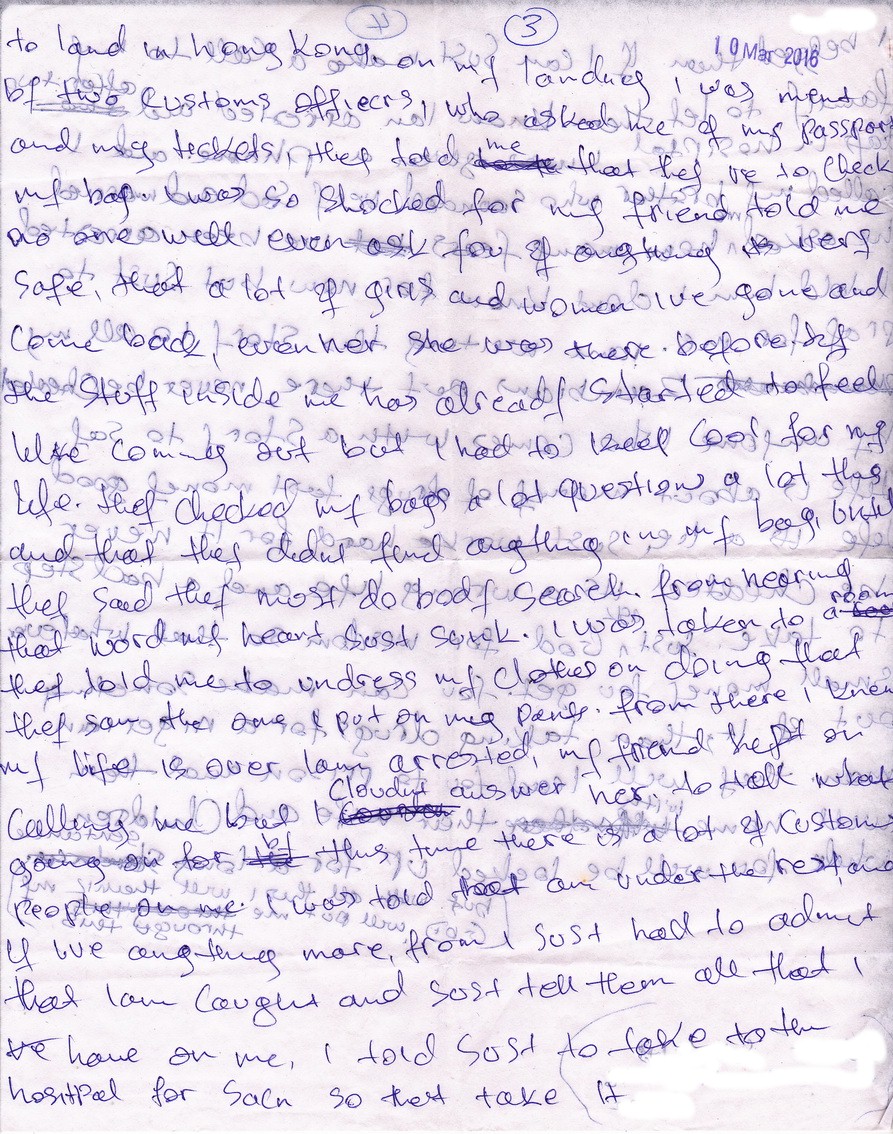 4 3
10 Mar 2016
to land in hong Kong. on my landing i was ment
by two Customs officers, who asked me of my passport
and my tickets, they told me that they ve to check
my bag. I was so shocked for my friend told me
no one well even ask for of anything is very
safe, that a lot of girls and women ive gone and
Come back, even her she was there. before by
the stuff inside me has already started to feel
like coming out but but I had to keep Cool for my
life. they checked my bags a lot question a lot this
and that they didnt find anything in my bag, Until
they said they most do body search. from hearing
that word my heart sust sunk. I was taken to a room
they told me to undress my Clothes on doing that
they saw the one i put on my pants. from there i knew
my life is over Iam arrested, my friend kept on
Calling me but I Cloudnt answer her to tell what
going on for by this time there is a lot of Custom
people on me. I was told that am under the rest, and
if ive anything more, from I sust had to admit
that Iam Caught and sust tell them all that I
ve have on me, I told sust to take to the
hositpal for Sacn so they take it